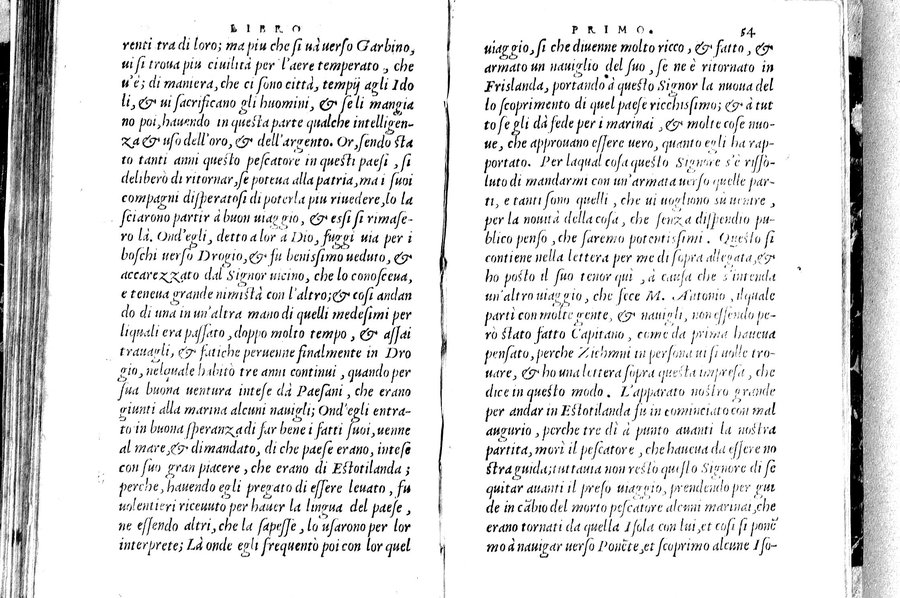 LIBRO
renti tra di loro; ma piu che si uà uerso Garbino,
ui si troua piu ciuilità per l'aere temperato, che
u'è; di maniera, che ci sono città, tempij agli Ido
li, & ui sacrificano gli huomini, & se li mangia
no poi, hauendo in questa parte qualche intelligen-
za & uso dell'oro, & dell'argento. Or, sendo sta
to tanti anni questo pescatore in questi paesi, si
deliberò di ritornar, se poteua alla patria, ma i suoi
compagni disperatosi di poterla piu riuedere, lo la
sciarono partir à buon uiaggio, & essi si rimase-
ro là. Ond'egli, detto a lor à Dio, fuggì uia per i
boschi uerso Drogio, & fu benissimo ueduto, &
accarezzato dal Signor uicino, che lo conosceua,
e teneua grande nimistà con l'altro; & così andan
do di una in un'altra mano di quelli medesimi per
liquali era passato, doppo molto tempo, & assai
trauagli, & fatiche peruenne finalmente in Dro
gio, nelquale habitò tre anni continui, quando per
sua buona uentura intese dà Paesani, che erano
giunti alla marina alcuni nauigli; Ond'egli entra-
to in buona speranza di far bene i fatti suoi, uenne
al mare, & dimandato, di che paese erano, intese
con suo gran piacere, che erano di Estotilanda;
perche, hauendo egli pregato di essere leuato, fu
uolentieri riceuuto per hauer la lingua del paese,
ne essendo altri, che la sapesse, lo usarono per lor
interprete; Là onde egli frequentò poi con lor quel
PRIMO. 54
uiaggio, si che diuenne molto ricco, & fatto, &
armato un nauiglio del suo, se ne è ritornato in
Frislanda, portando à questo Signor la nuoua del
lo scoprimento di quel paese ricchissimo; & à tut
to se gli dà fede per i marinai, & molte cose nuo-
ue, che approuano essere uero, quanto egli ha rap-
portato. Per laqual cosa questo Signore s'è risso-
luto di mandarmi con un'armata uerso quelle par-
ti, e tanti sono quelli, che ui uogliono sù uentre,
per la nouità della cosa, che senza dispendio pu-
blico penso, che saremo potentissimi. Questo si
contiene nella lettera per me di sopra allegata, &
ho posto il suo tenor qui, à causa che s'intenda
un'altro uiaggio, che fece M. Antonio, ilquale
partì con molte gente, & nauigli, non essendo pe-
rò stato fatto Capitano, come da prima haueua
pensato, perche Zichmni in persona ui si uolle tro-
uare, & ho una lettera sopra questa impresa, che
dice in questo modo. L'apparato nostro grande
per andar in Estotilanda fu in cominciato con mal
augurio, perche tre dì à punto auanti la nostra
partita, morì il pescatore, che haueua da essere no
stra guida; tuttauia non restò questo Signore di se
guitar auanti il preso uiaggio, prendendo per gui
de in cãbio del morto pescatore alcuni marinai, che
erano tornati da quella Isola con lui, et così si ponẽ
mo à nauigar uerso Ponẽte, et scoprimo alcune Iso-